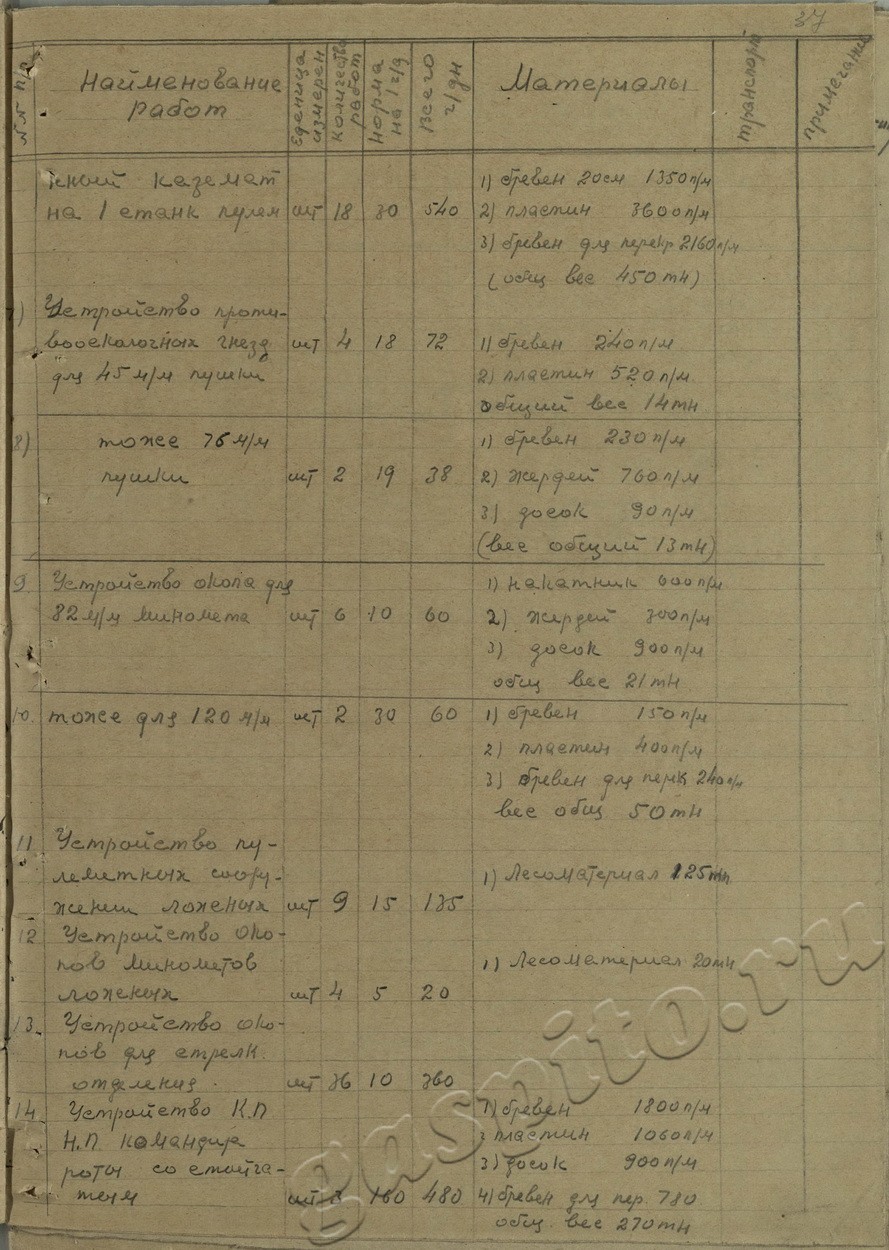 37
№№ п/п
Наименование
работ
Еденица
измерен
количество
работ
норма
на 1 ч/д
Всего
ч/дн
Материалы
транспорт
примечание
жный каземат
на 1 станк пулем шт 18 30 540
1) бревен 20см 1350 п/м
2) пластин 3600 п/м
3) бревен для перекр 2160 п/м
(общ вес 450 тн)
7) Устройство проти-
вооскалочных гнезд шт 4 18 72
для 45 м/м пушки
1) бревен 240 п/м
2) пластин 520 п/м
общий вес 14 тн
8) тоже 76 м/м
пушки шт 2 19 38
1) бревен 230 п/м
2) жердей 760 п/м
3) досок 90 п/м
(вес общий 13 тн)
9. Устройство окопа для
82 м/м миномета шт 6 10 60
1) накатник 600 п/м
2) жердей 300 п/м
3) досок 900 п/м
общ вес 21 тн
10. тоже для 120 м/м шт 2 30 60
1) бревен 150 п/м
2) пластин 400 п/м
3) бревен для перек 240 п/м
вес общ 50 тн
11 Устройство пу-
леметных соору-
жении ложеных шт 9 15 135
1) Лесоматериал 125 тн
12 Устройство око-
пов минометов
ложеных шт 4 5 20
1) Лесоматериал 20 тн
13. Устройство око-
пов для стрелк.
отделения. шт 36 10 360
14. Устройство К.П
Н.П. командира
роты со
шт 3 160 480
1) бревен 1800 п/м
2 пластин 1060 п/м
3) досок 900 п/м
4) бревен для пер. 780
общ. вес 270 тн
gaspito.ru